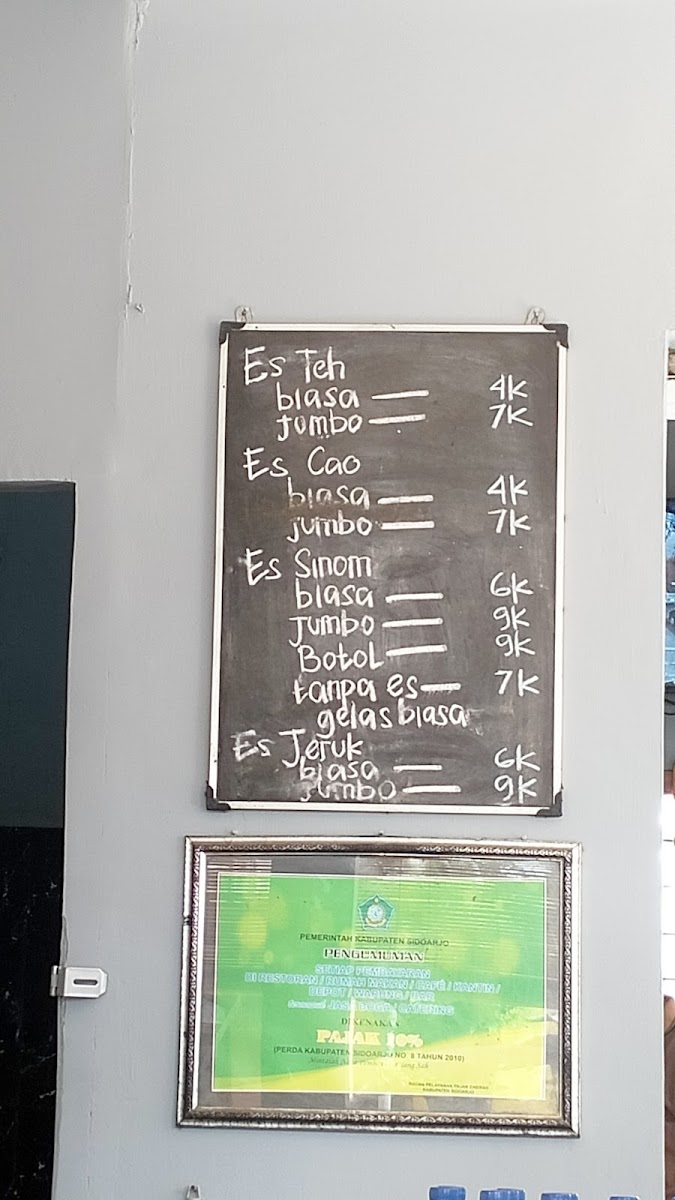 Es Teh
biasa — 4K
jumbo — 7K
Es Cao
biasa — 4K
jumbo — 7K
Es Sinom
biasa — 6K
jumbo — 9K
Botol — 9K
tanpa es — 7K
gelas biasa
Es Jeruk
biasa — 6K
jumbo — 9K
PEMERINTAH KABUPATEN SIDOARJO
PENGUMUMAN
SETIAP PEMBAYARAN
DI RESTORAN / RUMAH MAKAN / CAFÉ / KANTIN /
DEPOT / WARUNG / BAR
termasuk JASA BOGA / CATERING
DIKENAKAN
PAJAK 10%
(PERDA KABUPATEN SIDOARJO NO. 8 TAHUN 2010)
DINAS PELAYANAN PAJAK DAERAH
KABUPATEN SIDOARJO